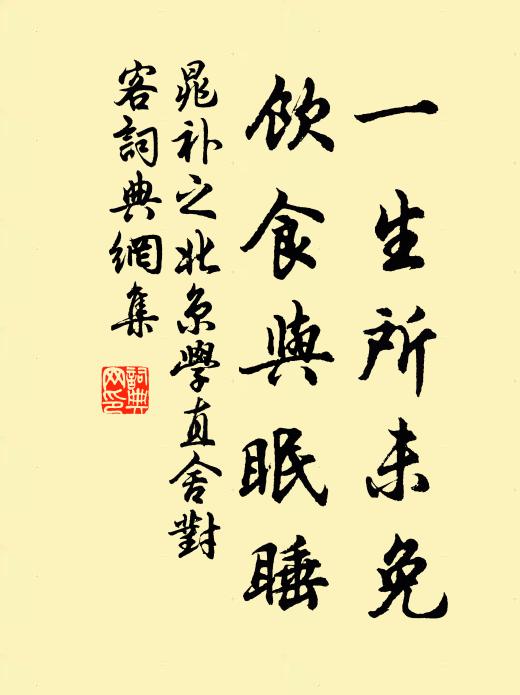 一生所未免
飲食與眠睡
晁补之北京學直舍對
客詞典網集
詞典
网印